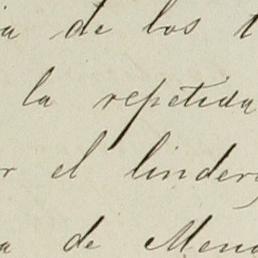 ia de los
la repetida
r el linder
a de Men